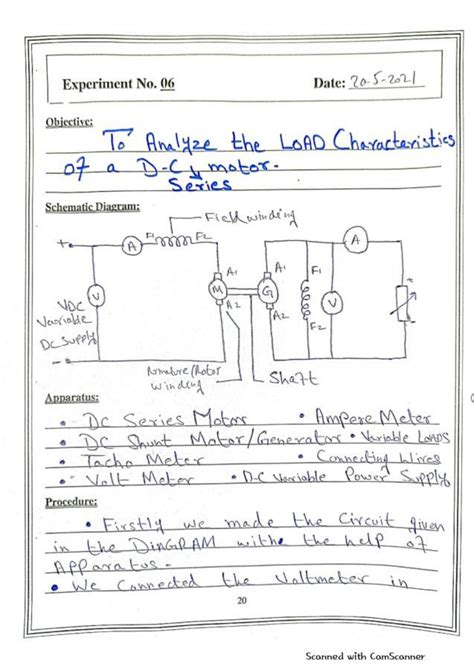 Experiment No. 06
Date: 20-5-2021
Objective:
To Analyze the LOAD Characteristics
of a D-C motor.
Series
Schematic Diagram:
Field winding
+
A
F1
F2
A
V
VDC
Variable
DC Supply
-
A1
M
A2
A1
G
A2
F1
F2
V
+
-
Armature/Rotor
winding
Shaft
Apparatus:
• DC Series Motor • Ampere Meter
• DC Shunt Motor/Generator • Variable LOADS
• Tacho Meter • Connecting Wires
• Volt Meter • D-C Variable Power Supply
Procedure:
• Firstly we made the Circuit given
in the DinGRAM withe the help of
Apparatus.
• We Connected the Voltmeter in
20
Scanned with CamScanner